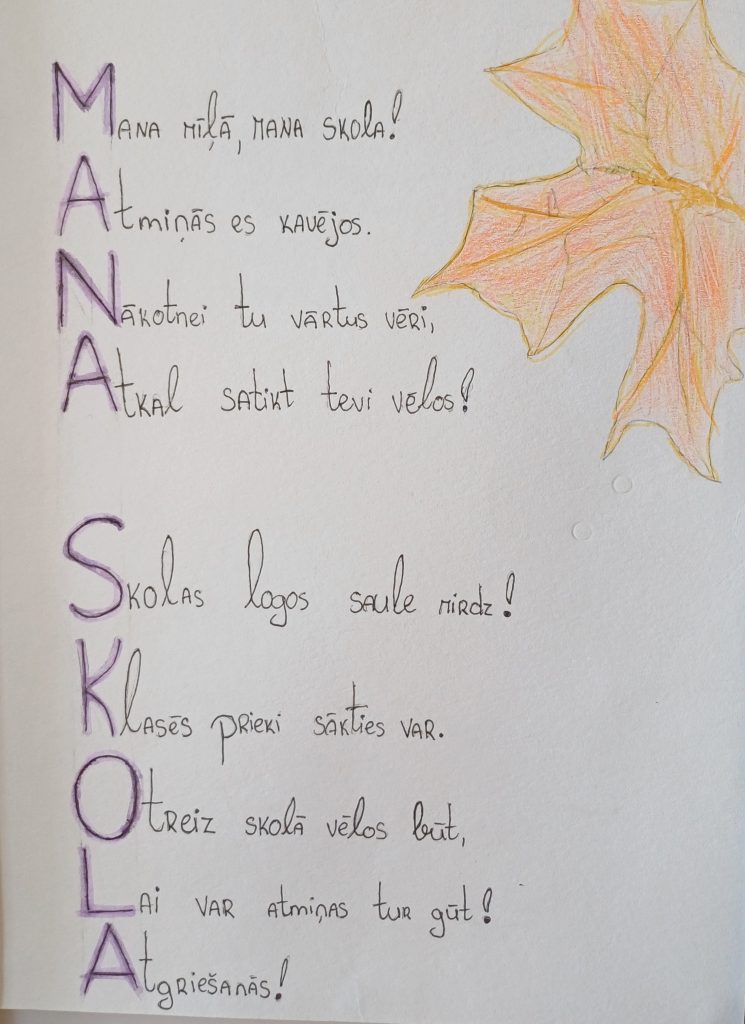 Mana mīļā, mana skola!
Atmiņās es kavējos.
Nākotnei tu vārtus vēri,
Atkal satikt tevi vēlos!
Skolas logos saule mirdz!
Klasēs prieki sākties var.
Otreiz skolā vēlos būt,
Lai var atmiņas tur gūt!
Atgriešanās!